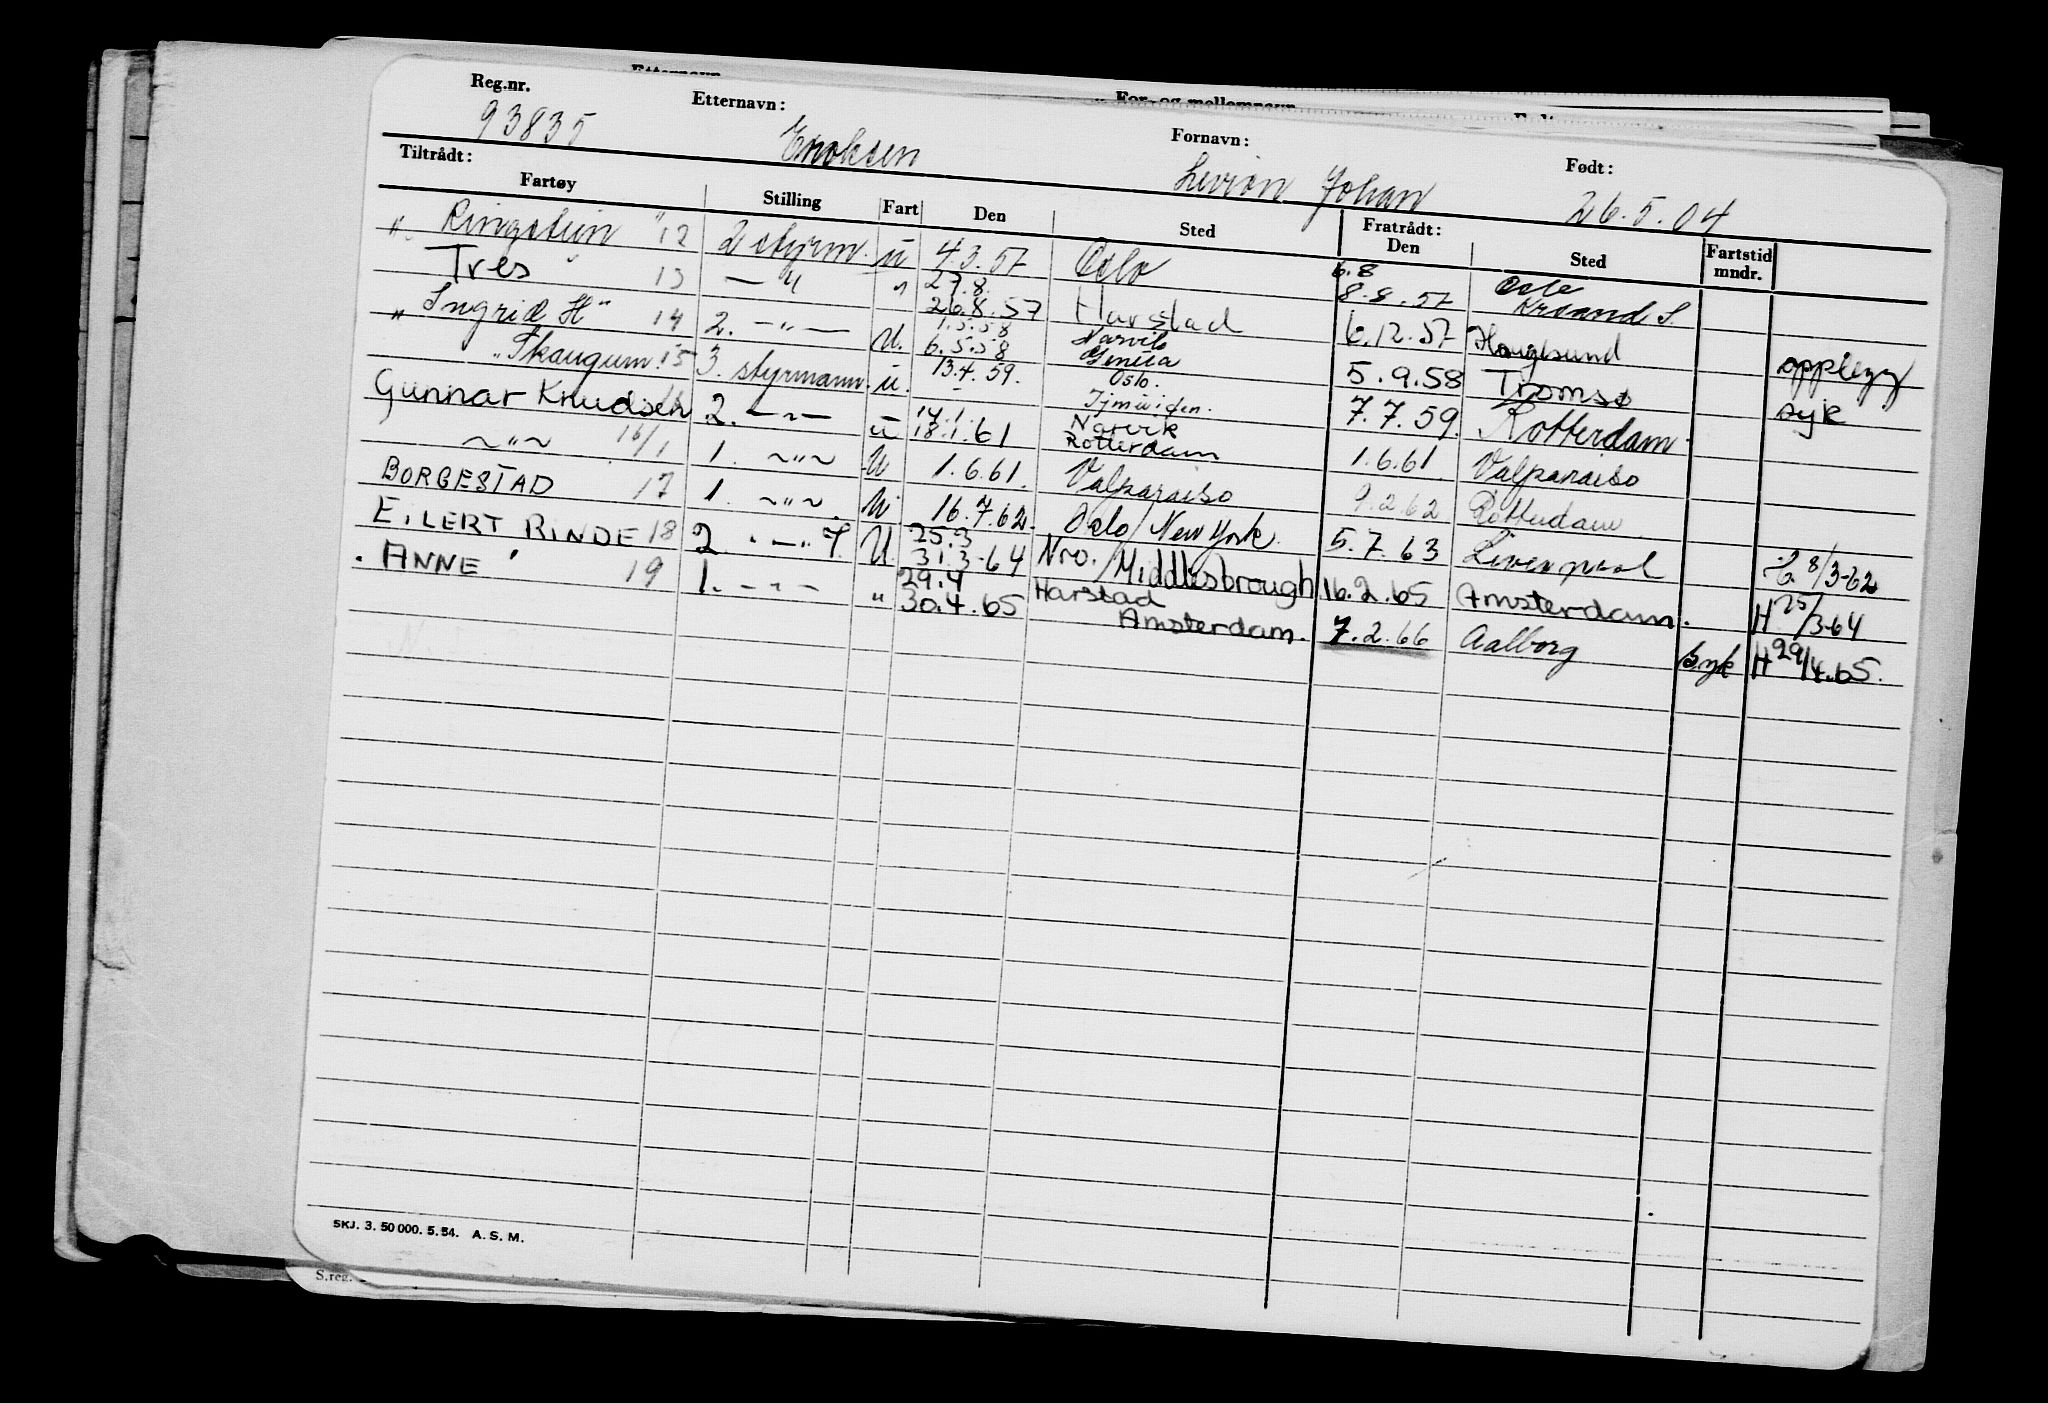 Reg.nr. Etternavn: Fornavn: Født:
93835 Enoksen Johan 26.5.04
Tiltrådt: Fratrådt:
Fartøy Stilling Fart Den Sted Den Sted Fartstid mndr.
" Ringstein " 12 2 styrm. u 4.3.57 Oslo 6.8 8.8.57 Oslo Krsand S.
Tres 13 — " " 27.8. 26.8.57 Harstad 6.12.57 Haugesund opplegg
" Ingrid H " 14 2. — " — U. 1.5.58 6.5.58 Narvik 5.9.58 Tromsø syk
" Skaugum 15 3. styrmann. u. 13.4.59. Oslo. Ijmuiden. 7.7.59. Rotterdam
Gunnar Knudsen 16 2. — " — u 14.1. 18.1.61 Narvik Rotterdam 1.6.61. Valparaiso
~ " ~ 16/1 1. ~ " ~ U 1.6.61. Valparaiso 9.2.62 Rotterdam
BORGESTAD 17 1. ~ " ~. U 16.7.62. Oslo / New York. 5.7.63 Liverpool 8/3-62
EILERT RINDE 18 2. - " - U 25.3 31.3-64 Nvo. / Middlesbrough 16.2.65 Amsterdam. H 25/3-64
" ANNE " 19 1. - " - " 29.4 30.4.65 Harstad Amsterdam. 7.2.66 Aalborg syk H 29/4.65.
SKJ. 3. 50 000. 5. 54. A. S. M.
S.reg.